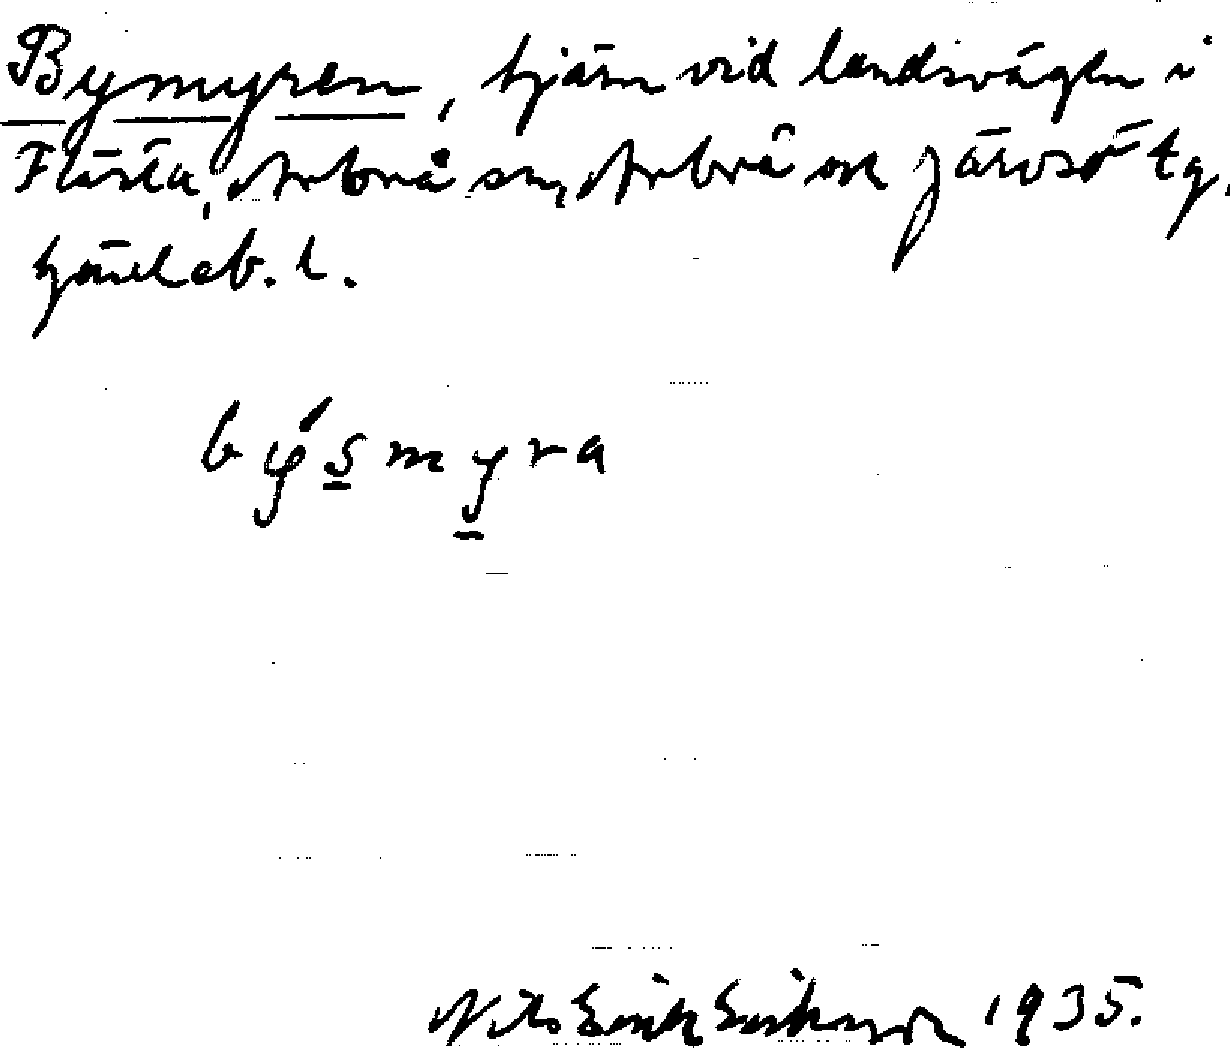 Bymyren, tjärn vid landsvägen i
Flästa, Arbrå sn, Arbrå ok Järvsö tg,
Gävleb. l.
býs̱my̱ra
Nils Erik Eriksson 1935.